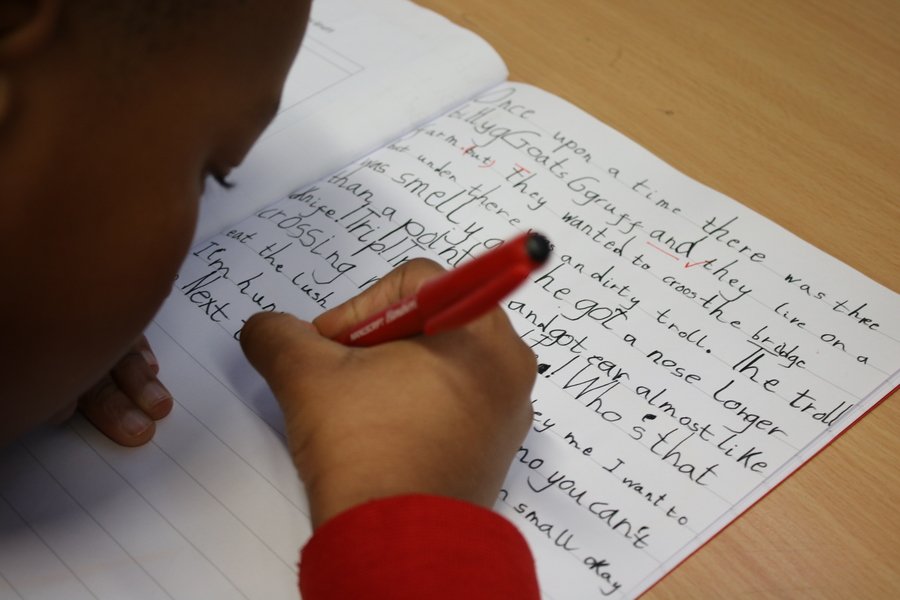 Once upon a time there was thre
billygGoats Ggruff and they live on a
farm.but) They wanted to cross the bridge
but under there an dirty troll. The troll
was smelly He got a nose longer
than a and got ear almost like
knife! Trip! Who s that
crossing me I want to
eat the lush no you can't
I'm small okay
Next